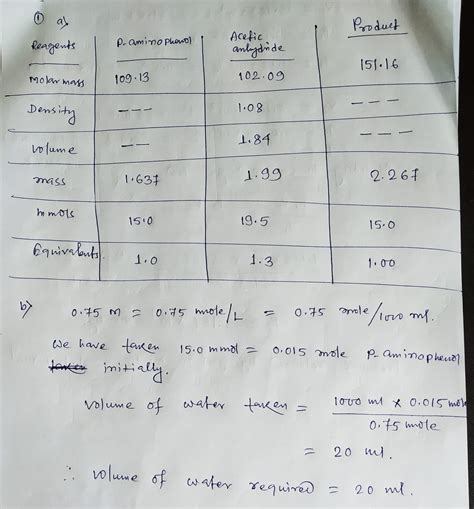 ① a)
Reagents P-aminophenol Acetic anhydride Product
Molar mass 109.13 102.09 151.16
Density --- 1.08 ---
volume -- 1.84 ---
mass 1.637 1.99 2.267
mmols 15.0 19.5 15.0
Equivalents 1.0 1.3 1.00
b) 0.75 M = 0.75 mole/L = 0.75 mole/1000 ml.
We have taken 15.0 mmol = 0.015 mole P-aminophenol
taken initially.
Volume of water taken = 1000 ml x 0.015 mole
0.75 mole
= 20 ml.
∴ Volume of water required = 20 ml.